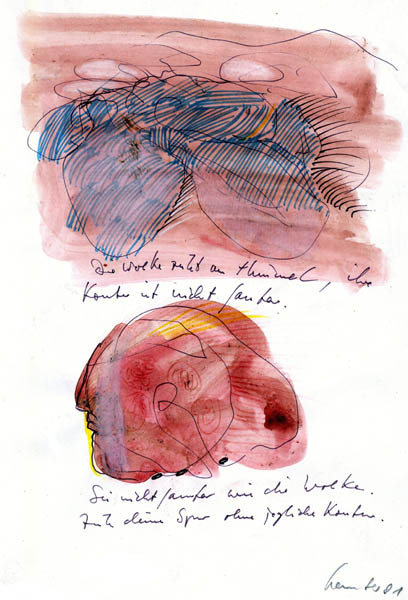 Die Wolke ruht am Himmel, ihre
Kontur ist nicht sauber.
Sei nicht sauber wie die Wolke.
Zieh deine Spur ohne jegliche Kontur.